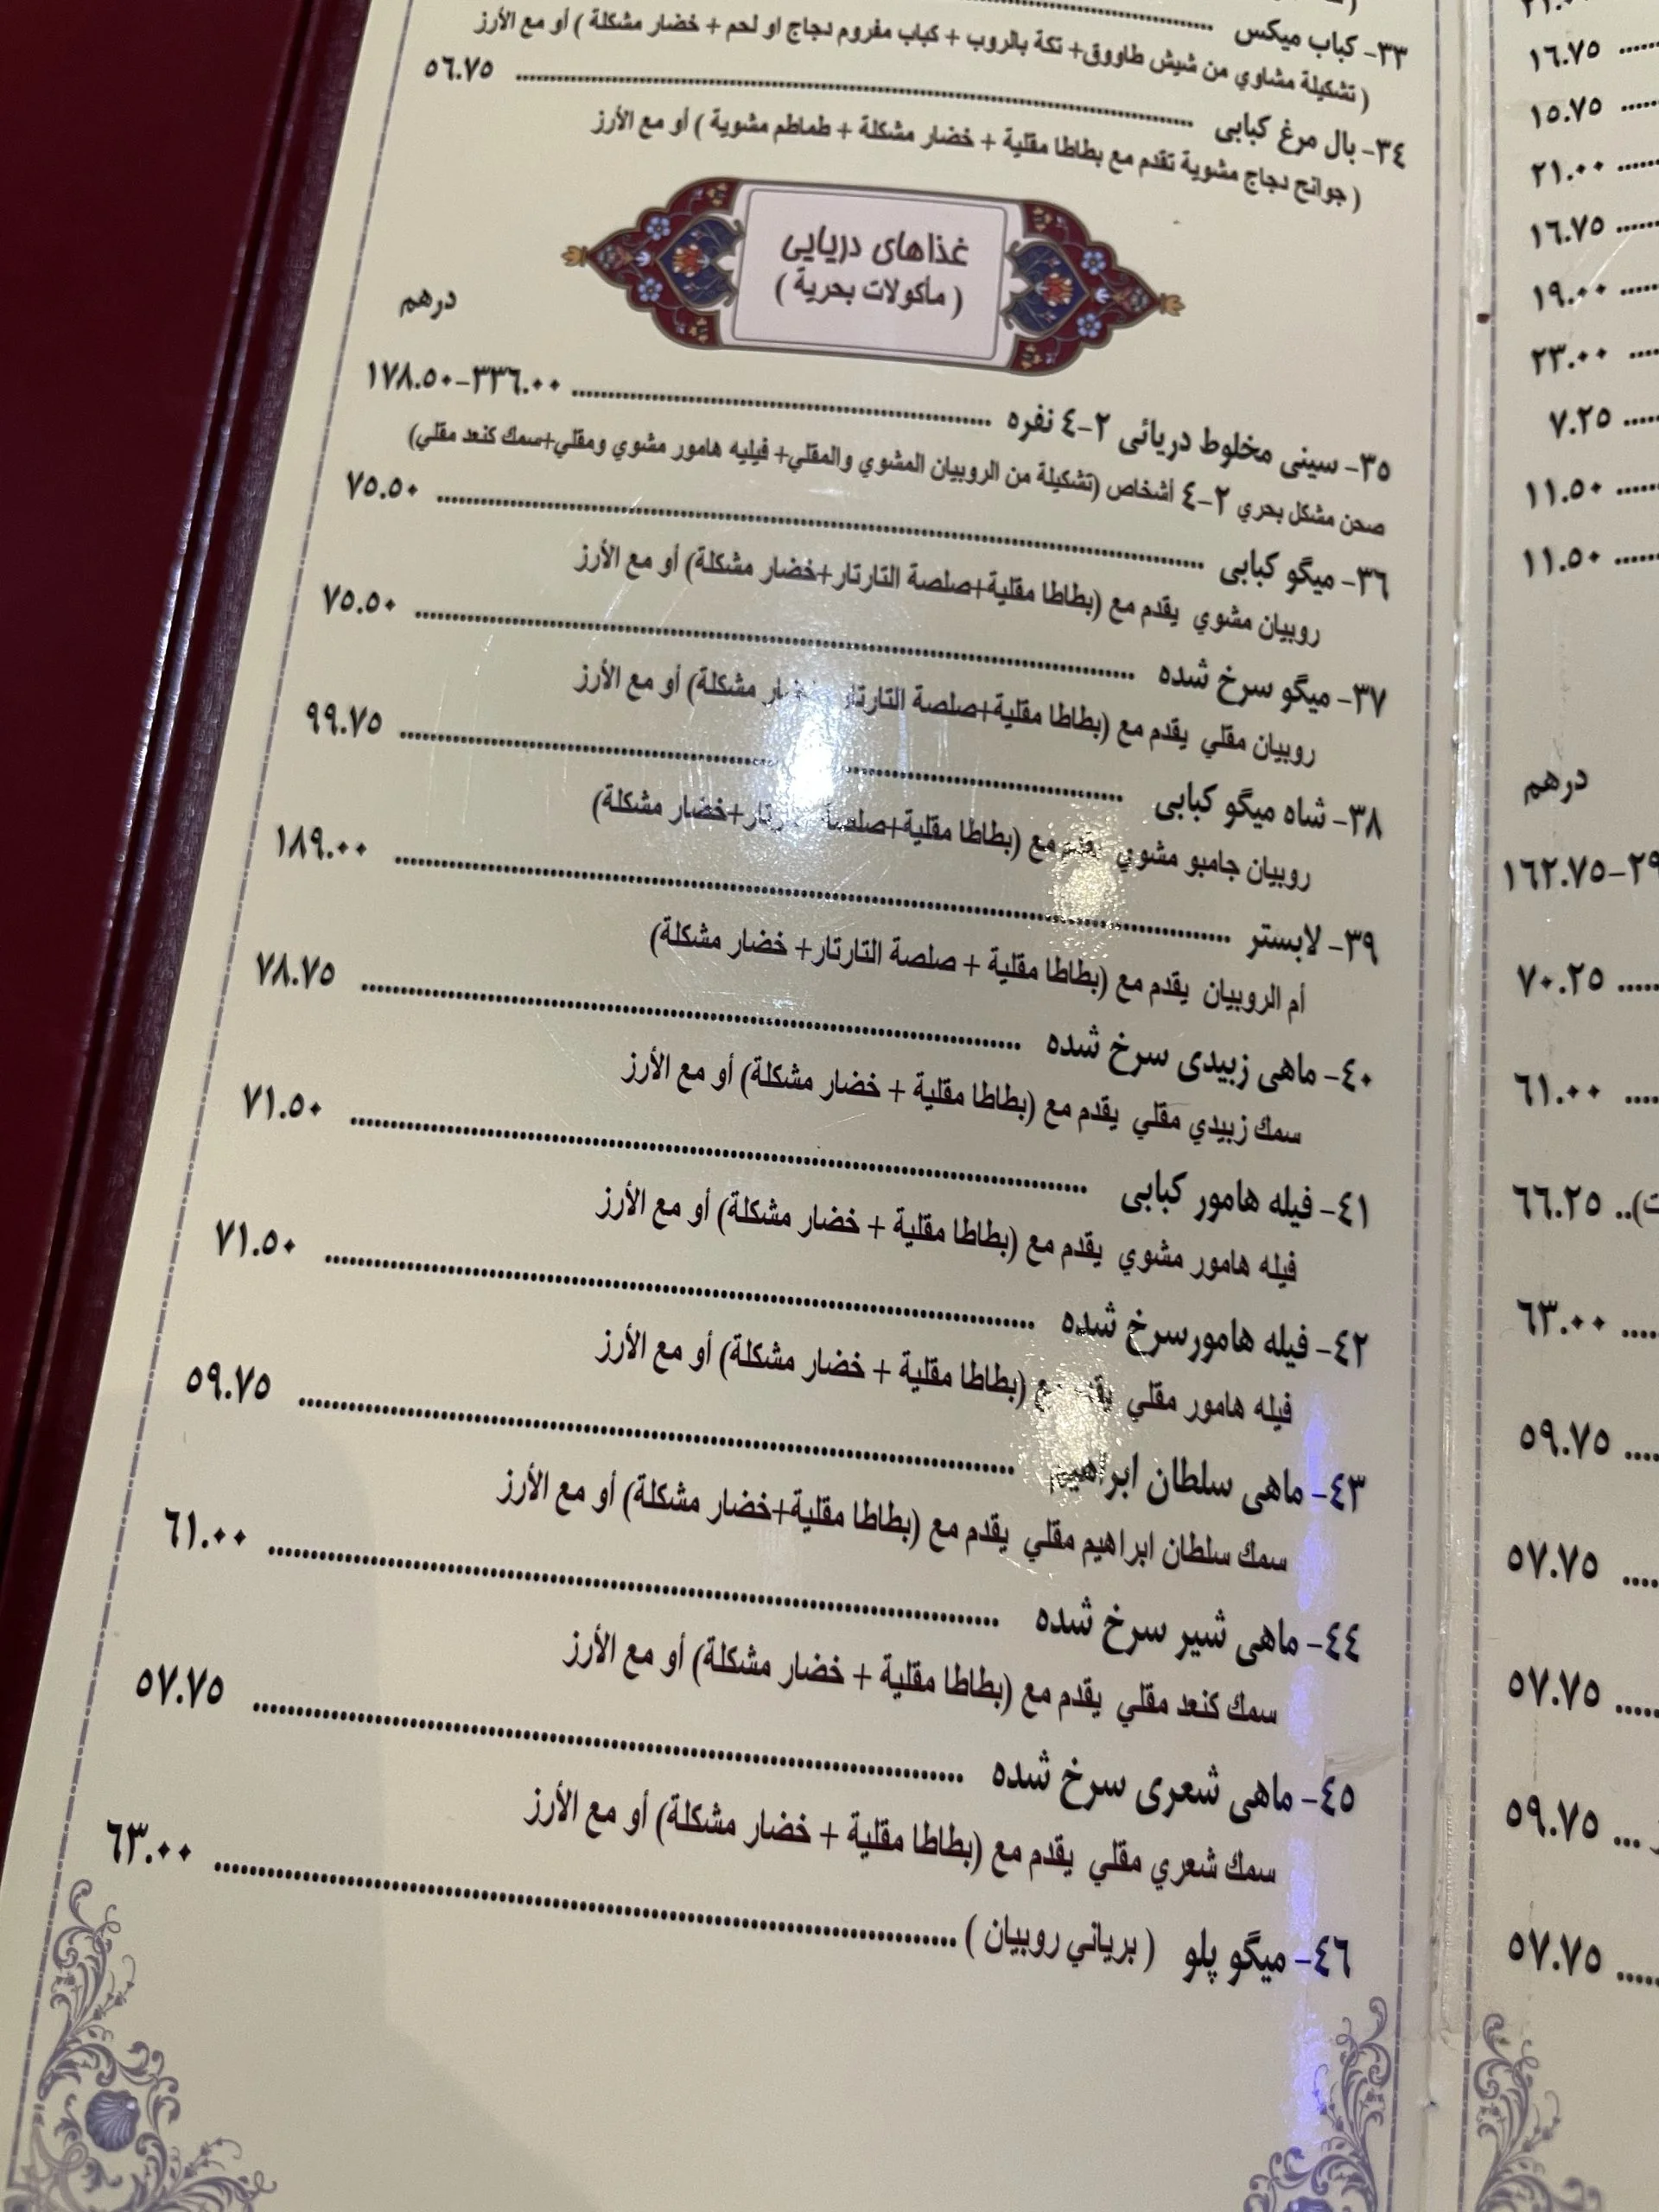 ٣٣- كباب ميكس
( تشكيلة مشاوي من شيش طاووق+ تكة بالروب + كباب مفروم دجاج او لحم + خضار مشكلة ) أو مع الأرز
٣٤- بال مرغ كبابى ٥٦.٧٥
( جوانح دجاج مشوية تقدم مع بطاطا مقلية + خضار مشكلة + طماطم مشوية ) أو مع الأرز
غذاهای دریایی
( مأكولات بحرية )
درهم
٣٥- سينى مخلوط دريائى ٢-٤ نفره ١٧٨.٥٠-٣٣٦.٠٠
صحن مشكل بحري ٢-٤ أشخاص (تشكيلة من الروبيان المشوي والمقلي+ فيليه هامور مشوي ومقلي+سمك كنعد مقلي)
٣٦- ميگو كبابى ٧٥.٥٠
روبيان مشوي يقدم مع (بطاطا مقلية+صلصة التارتار+خضار مشكلة) أو مع الأرز
٣٧- ميگو سرخ شده ٧٥.٥٠
روبيان مقلي يقدم مع (بطاطا مقلية+صلصة التارتار مشكلة) أو مع الأرز
٣٨- شاه ميگو كبابى ٩٩.٧٥
روبيان جامبو مشوي مع (بطاطا مقلية+صلصة +خضار مشكلة)
٣٩- لابستر ١٨٩.٠٠
أم الروبيان يقدم مع (بطاطا مقلية + صلصة التارتار+ خضار مشكلة)
٤٠- ماهى زبيدى سرخ شده ٧٨.٧٥
سمك زبيدي مقلي يقدم مع (بطاطا مقلية + خضار مشكلة) أو مع الأرز
٤١- فيله هامور كبابى ٧١.٥٠
فيله هامور مشوي يقدم مع (بطاطا مقلية + خضار مشكلة) أو مع الأرز
٤٢- فيله هامورسرخ شده ٧١.٥٠
فيله هامور مقلي (بطاطا مقلية + خضار مشكلة) أو مع الأرز
٤٣- ماهى سلطان ابراهيم ٥٩.٧٥
سمك سلطان ابراهيم مقلي يقدم مع (بطاطا مقلية+خضار مشكلة) أو مع الأرز
٤٤- ماهى شير سرخ شده ٦١.٠٠
سمك كنعد مقلي يقدم مع (بطاطا مقلية + خضار مشكلة) أو مع الأرز
٤٥- ماهى شعرى سرخ شده ٥٧.٧٥
سمك شعري مقلي يقدم مع (بطاطا مقلية + خضار مشكلة) أو مع الأرز
٤٦- ميگو پلو ( برياني روبيان ) ٦٣.٠٠
١٦.٧٥
١٥.٧٥
٢١.٠٠
١٦.٧٥
١٩.٠٠
٢٣.٠٠
٧.٢٥
١١.٥٠
١١.٥٠
درهم
١٦٢.٧٥-٢٩
٧٠.٢٥
٦١.٠٠
٦٦.٢٥
٦٣.٠٠
٥٩.٧٥
٥٧.٧٥
٥٧.٧٥
٥٩.٧٥
٥٧.٧٥